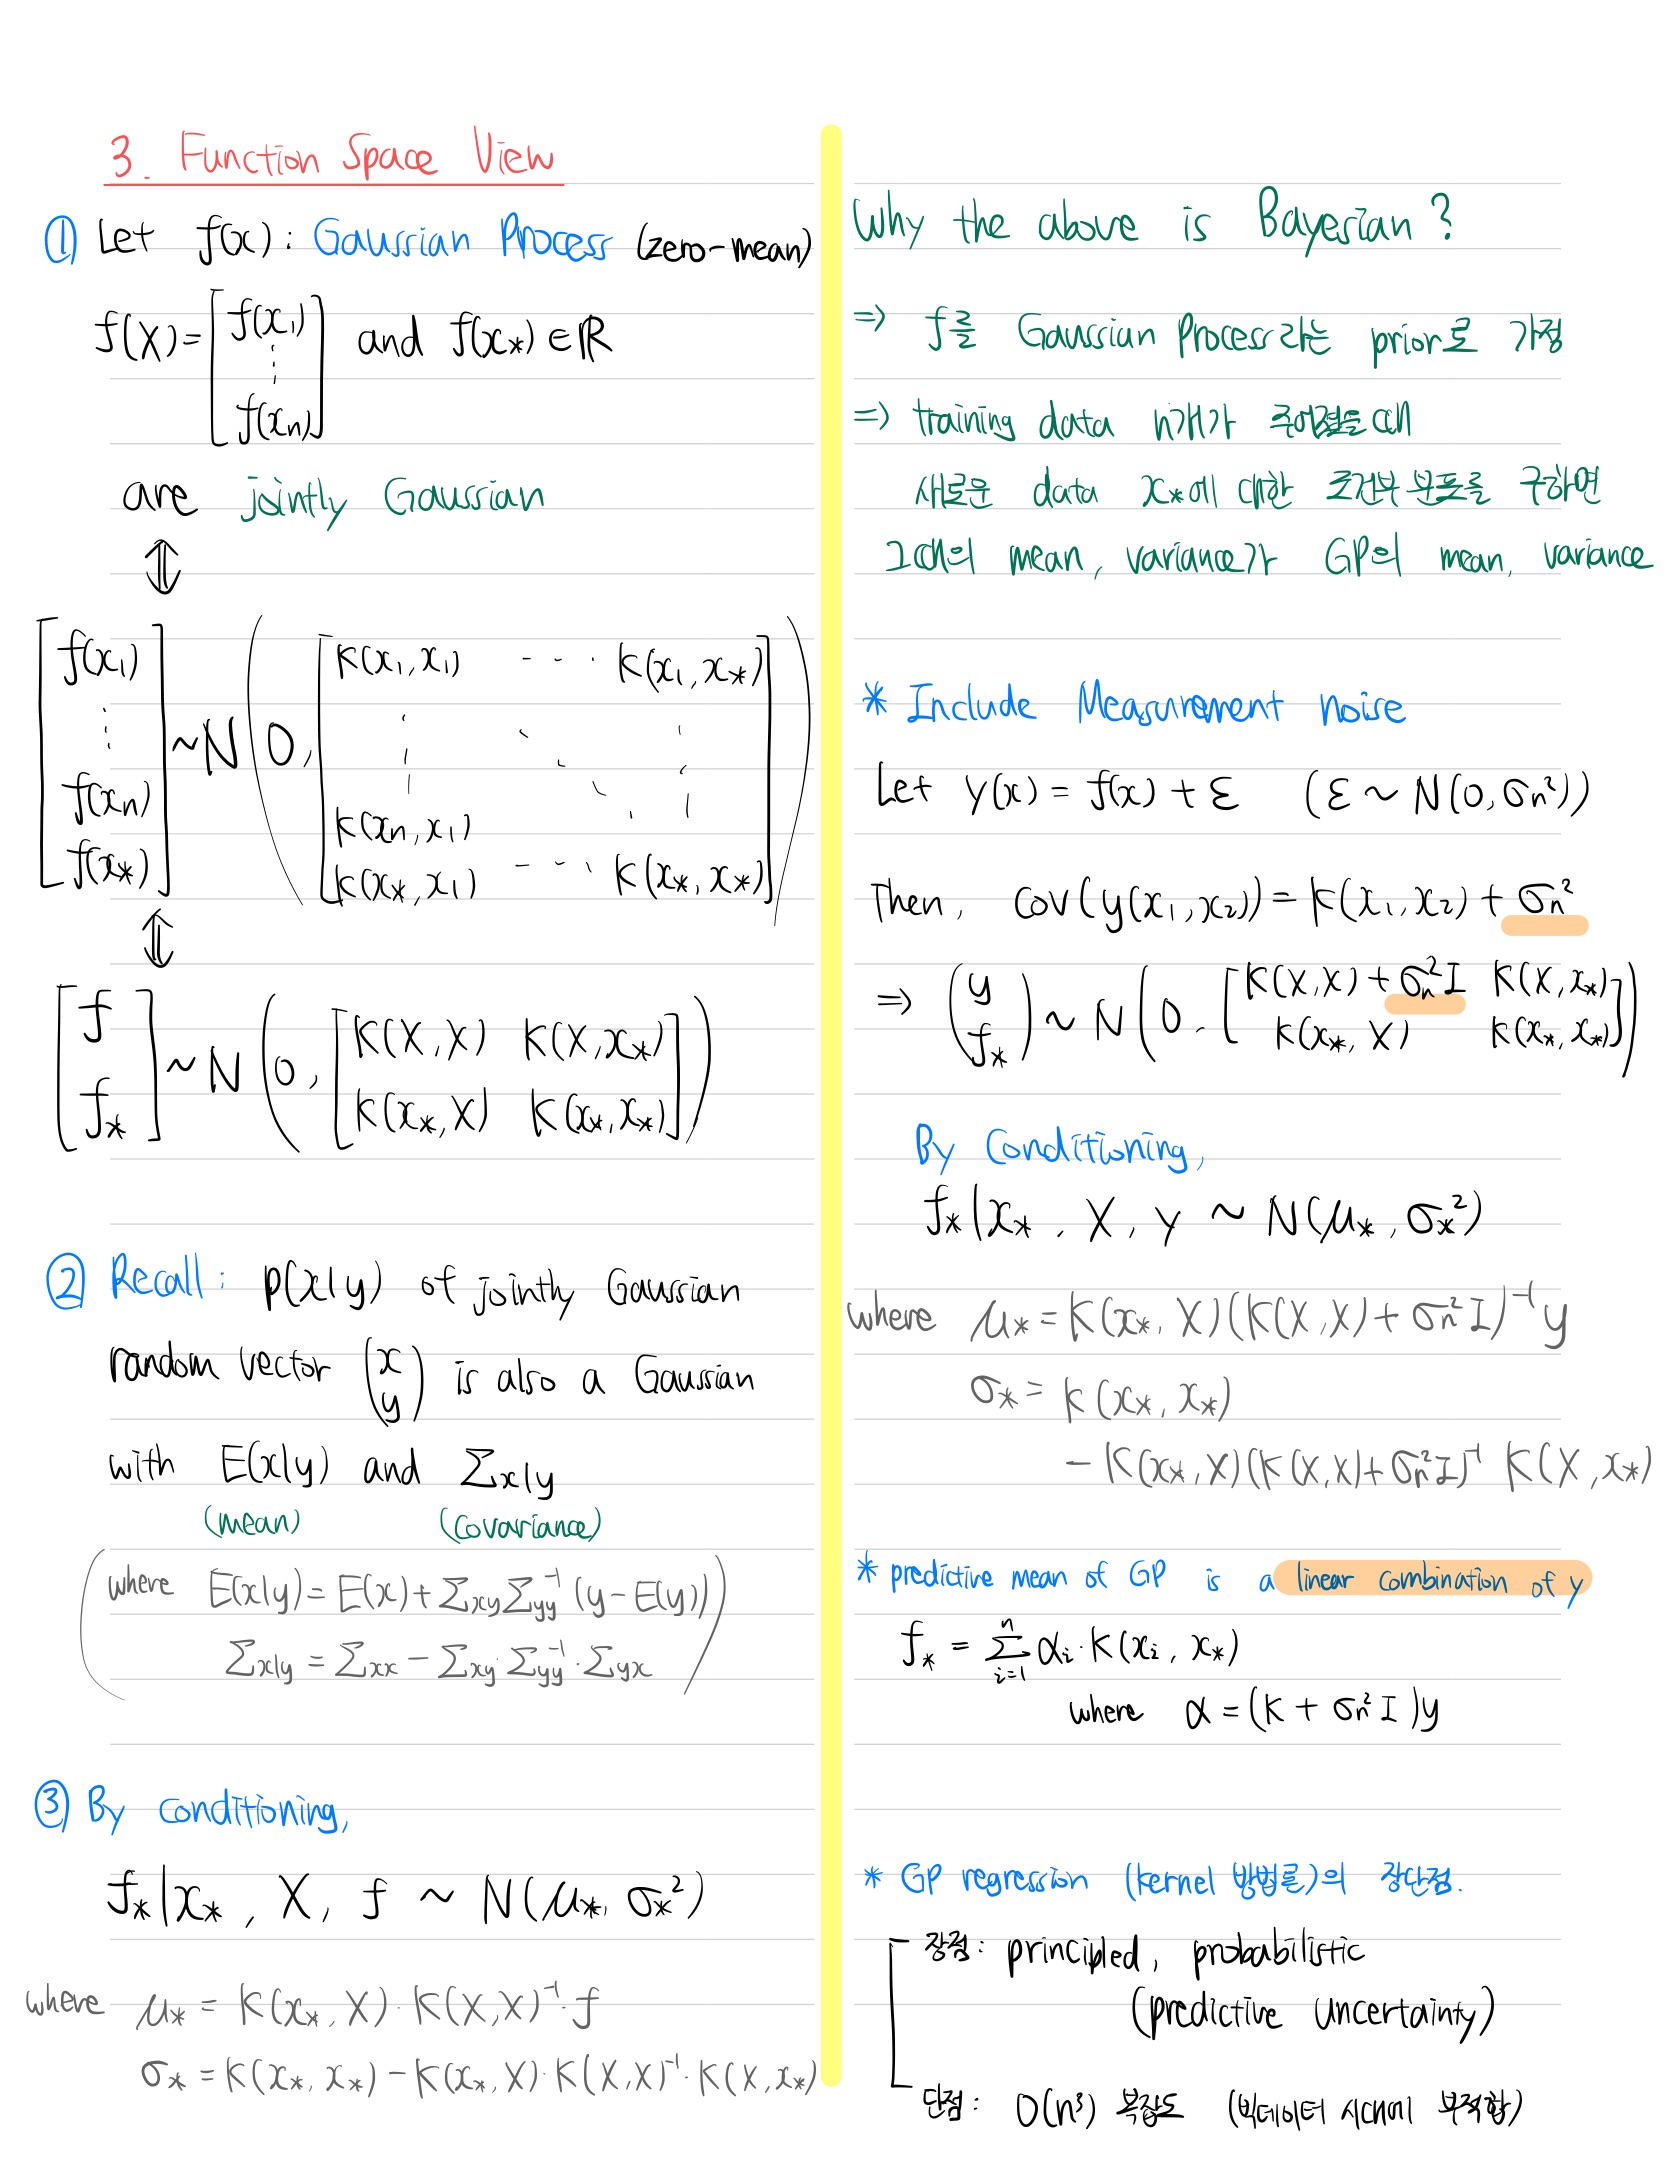 3. Function Space View
① Let f(x) : Gaussian Process (zero-mean)
f(X) = [f(x₁) ⋮ f(xₙ)] and f(x*) ∈ ℝ
are jointly Gaussian
⇕
[f(x₁) ⋮ f(xₙ) f(x*)] ~ N(0, [k(x₁,x₁) ⋯ k(x₁,x*) ⋮ ⋱ ⋮ k(xₙ,x₁) k(x*,x₁) ⋯ k(x*,x*)])
⇕
[f f*] ~ N(0, [K(X,X) K(X,x*) K(x*,X) K(x*,x*)])
② Recall : p(x|y) of jointly Gaussian
random vector (x y) is also a Gaussian
with E(x|y) and Σx|y
(mean) (covariance)
(where E(x|y) = E(x) + Σxy Σyy⁻¹ (y - E(y))
Σx|y = Σxx - Σxy · Σyy⁻¹ · Σyx)
③ By conditioning,
f*|x*, X, f ~ N(μ*, σ*²)
where μ* = K(x*, X) · K(X,X)⁻¹ · f
σ* = K(x*, x*) - K(x*, X) · K(X,X)⁻¹ · K(X,x*)
Why the above is Bayesian ?
⇒ f를 Gaussian Process라는 prior로 가정
⇒ training data n개가 주어졌을 때
새로운 data x*에 대한 조건부 분포를 구하면
그때의 mean, variance가 GP의 mean, variance
* Include Measurement noise
Let y(x) = f(x) + ε (ε ~ N(0, σₙ²))
Then, cov(y(x₁,x₂)) = k(x₁,x₂) + σₙ²
⇒ (y f*) ~ N(0, [K(X,X) + σₙ²I K(X,x*) K(x*,X) K(x*,x*)])
By Conditioning,
f*|x*, X, y ~ N(μ*, σ*²)
where μ* = K(x*, X)(K(X,X) + σₙ²I)⁻¹y
σ* = K(x*, x*)
- K(x*,X)(K(X,X) + σₙ²I)⁻¹ K(X,x*)
* predictive mean of GP is a linear combination of y
f* = Σᵢ₌₁ⁿ αᵢ · K(xᵢ, x*)
where α = (K + σₙ²I)y
* GP regression (kernel 방법론)의 장단점.
장점 : principled, probabilistic
(predictive uncertainty)
단점 : O(n³) 복잡도 (빅데이터 시대에 부적합)